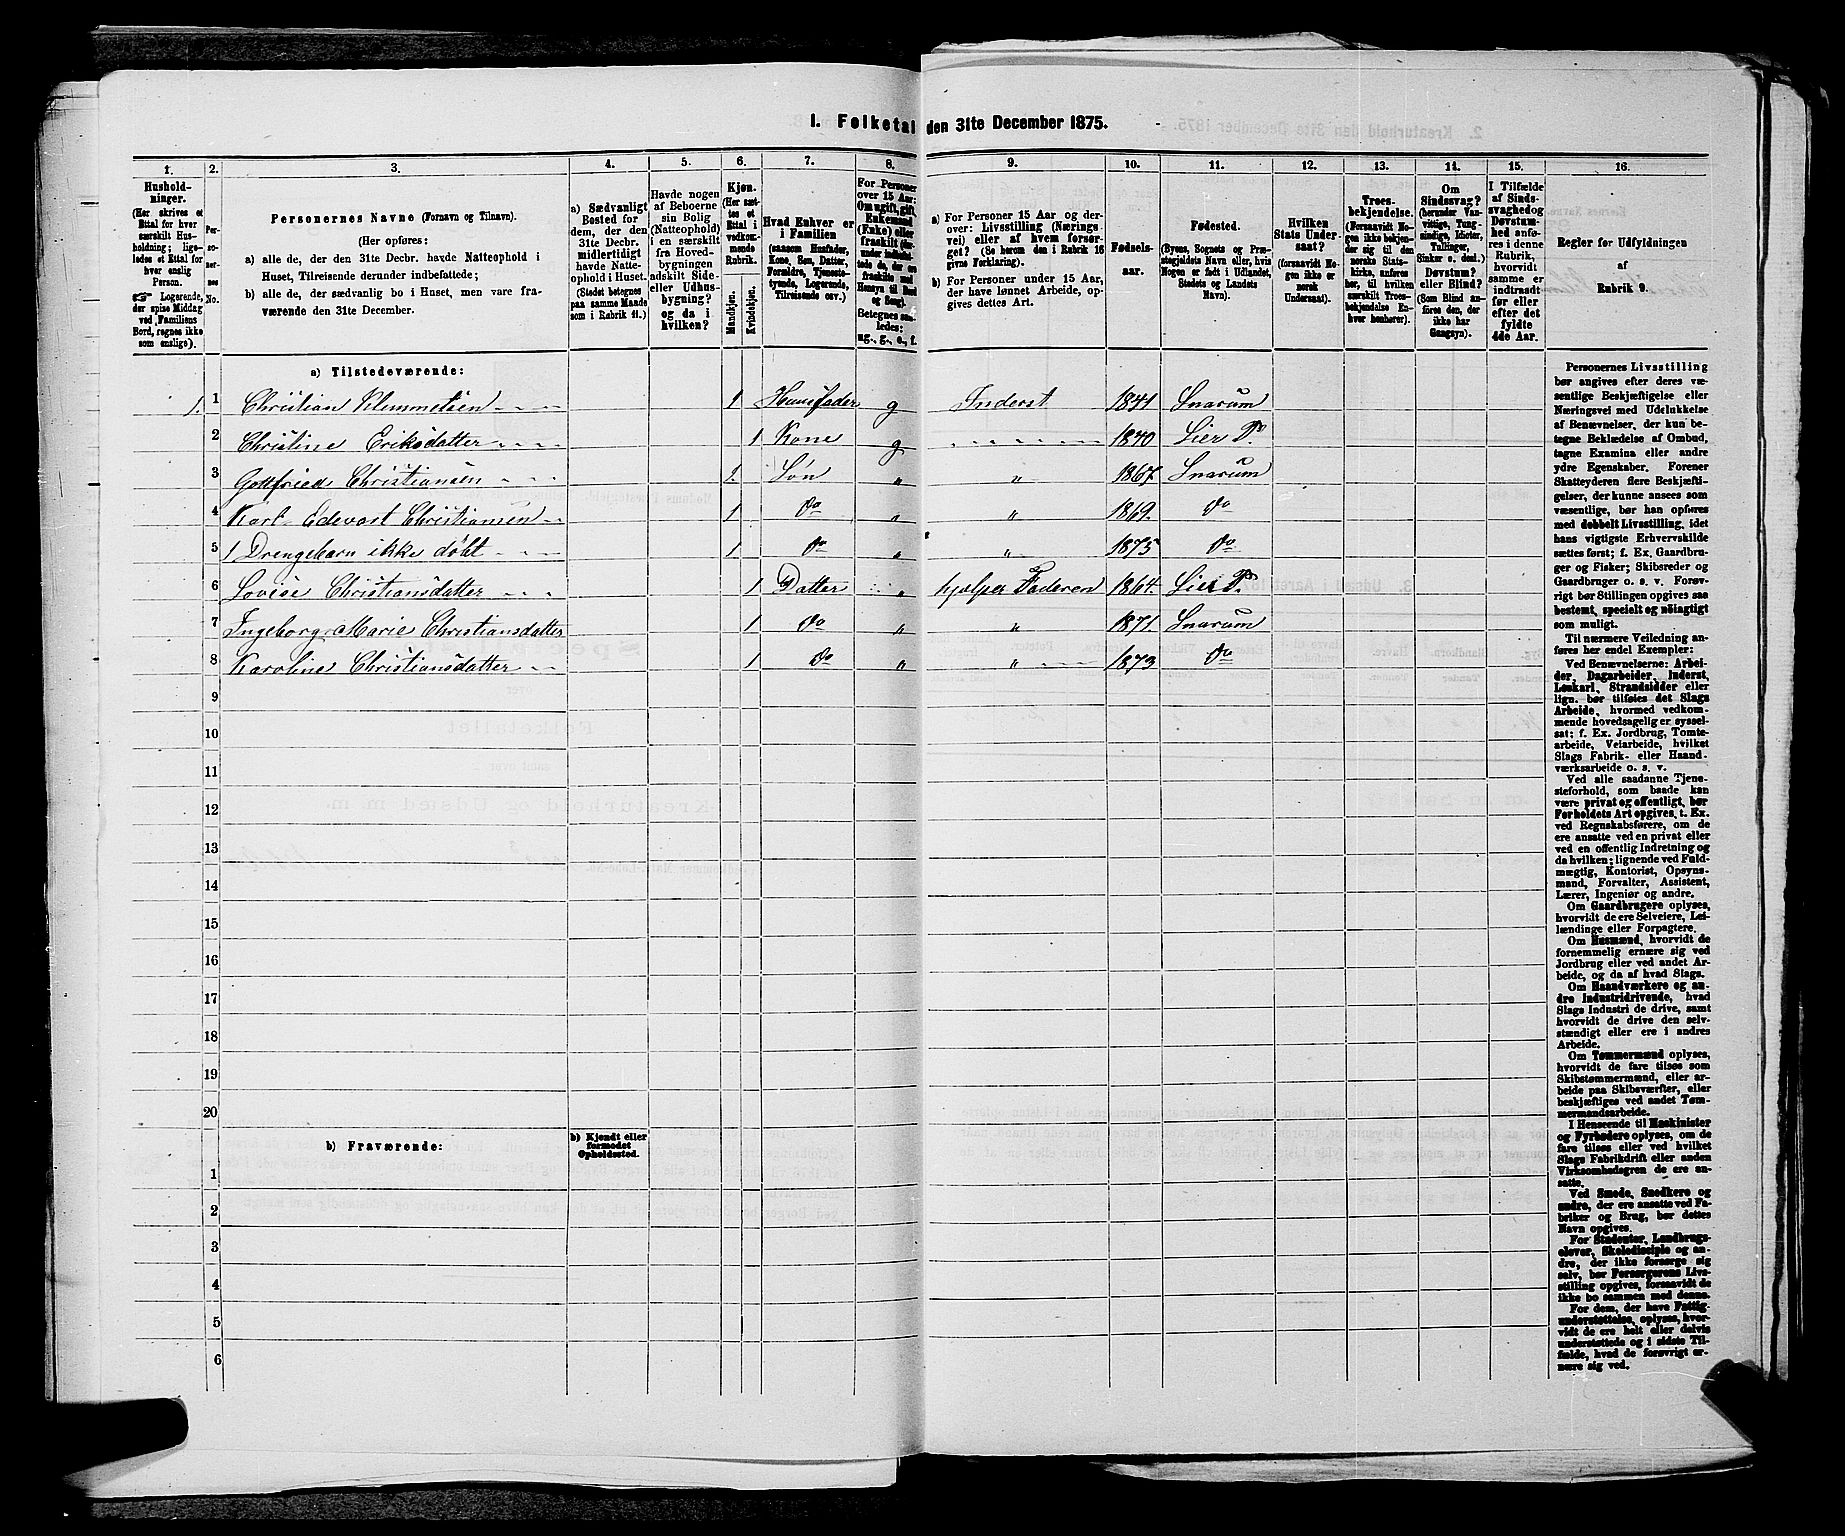 I. Folketal den 31te December 1875.
1.
Hushold-
ninger.
(Her skrives et
Ettal for hver
særskilt Hus-
holdning; lige-
ledes et Ettal
for hver
enslig
Person.
Logerende,
der spise Middag
ved Familiens
Bord, regnes ikke
som enslige).
2.
Per-
so-
ner-
nes
No.
3.
Personernes Navne (Fornavn og Tilnavn).
(Her opføres:
a) alle de, der den 31te Decbr. havde Natteophold i
Huset, Tilreisende derunder indbefattede;
b) alle de, der sædvanlig bo i Huset, men vare fra-
værende den 31te December.
4.
a) Sædvanligt
Bosted for
dem, der den
31te Decbr.
midlertidigt
havde Natte-
ophold i Huset.
(Stedet betegnes
paa samme Maade
som i Rubrik 11.)
5.
Havde nogen
af Beboerne
sin Bolig
(Natteophold)
i en særskilt
fra Hoved-
bygningen
adskilt Side-
eller Udhus-
bygning?
og da i
hvilken?
6.
Kjøn.
(Her sæt-
tes et
Ettal i
vedkom-
mende
Rubrik.
Mandkjøn.
Kvindekjøn.
7.
Hvad Enhver er
i Familien
(saasom Husfader,
Kone, Søn, Datter,
Forældre, Tjeneste-
tyende, Logerende,
Tilreisende osv.)
8.
For Personer
over 15 Aar:
Om ugift, gift,
Enkemand
(Enke) eller
fraskilt
Betegnes saa-
ledes:
ug., g., e., f.
9.
a) For Personer 15 Aar og der-
over: Livsstilling (Nærings-
vei) eller af hvem forsør-
get? (Se herom den i Rubrik 16
givne Forklaring).
b) For Personer under 15 Aar,
der have lønnet Arbeide, op-
gives dettes Art.
10.
Fødsels-
aar.
11.
Fødested.
(Byens, Sognets og Præ-
stegjeldets Navn eller, hvis
Nogen er født i Udlandet,
Stedets og Landets
Navn).
12.
Hvilken
Stats Under-
saat?
(forsaavidt No-
gen ikke er
norsk
Undersaat).
13.
Troes-
bekjendelse.
(Forsaavidt No-
gen ikke bekjen-
der sig til den
norske Stats-
kirke, anføres
her, til hvilken
særskilt Troes-
bekjendelse En-
hver henhører).
14.
Om
Sindssvag?
(herunder Van-
vittige, Tung-
sindige, Idioter,
Tullinger,
Sinker o. desl.)
Døvstum?
eller Blind?
(Som Blind an-
føres den, der
ikke har
Gangsyn).
15.
I Tilfælde
af Sinds-
svaghed og
Døvstum-
hed anfø-
res i denne
Rubrik,
hvorvidt
samme er
indtraadt
før eller
efter det
fyldte
4de Aar.
16.
Regler for Udfyldningen
af
Rubrik 9.
a) Tilstedeværende:
1. 1 Christian Klemmetsen 1 Huusfader g Inderst 1841 Snarum
2 Christine Eriksdatter 1 Kone g 1840 Lier P.
3 Gottfried Christiansen 1. Søn „ „ 1867. Snarum
4 Karl Edevart Christiansen 1 do „ „ 1869. do
5 1 Drengebarn ikke døbt 1 do „ „ 1875 do
6 Lovise Christiansdatter 1 Datter „ hjælper Faderen 1864. Lier P.
7 Ingeborg Marie Christiansdatter 1 do „ „ 1871. Snarum
8 Karoline Christiansdatter 1 do „ „ 1873 do
9
10
11
12
13
14
15
16
17
18
19
20
b) Fraværende:
b) Kjendt eller
formodet
Opholdssted.
1
2
3
4
5
6
Personernes Livsstilling
bør angives efter deres væ-
sentlige Beskjæftigelse eller
Næringsvei med Udelukkelse
af Benævnelser, der kun be-
tegne Beklædelse af Ombud,
tagne Examina eller andre
ydre Egenskaber. Forener
Skatteyderen flere Beskjæfti-
gelser, der kunne ansees som
væsentlige, bør han opføres
med dobbelt Livsstilling, idet
hans vigtigste Erhvervskilde
sættes først; f. Ex. Gaardbru-
ger og Fisker; Skibsreder og
Gaardbruger o. s. v. Forøv-
rigt bør Stillingen opgives saa
bestemt, specielt og nøiagtigt
som muligt.
Til nærmere Veiledning an-
føres her endel Exempler:
Ved Benævnelserne: Arbei-
der, Dagarbeider, Inderst,
Løskarl, Strandsidder eller
lign. bør tilføies det Slags
Arbeide, hvormed vedkom-
mende hovedsagelig er syssel-
sat; f. Ex. Jordbrug, Tomte-
arbeide, Veiarbeide, hvilket
Slags Fabrik- eller Haand-
værksarbeide o. s. v.
Ved alle saadanne Tjene-
steforhold, som baade kan
være privat og offentligt, bør
Forholdets Art opgives, t. Ex.
ved Regnskabsførere, om de
ere ansatte ved en privat eller
ved en offentlig Indretning og
da hvilken; lignende ved Fuld-
mægtig, Kontorist, Opsyns-
mand, Forvalter, Assistent,
Lærer, Ingeniør og andre.
Om Gaardbrugere oplyses,
hvorvidt de ere Selveiere, Lei-
lændinge eller Forpagtere.
Om Husmænd, hvorvidt de
fornemmelig ernære sig ved
Jordbrug eller ved andet Ar-
beide, og da af hvad Slags.
Om Haandværkere og an-
dre Industridrivende, hvad
Slags Industri de drive, samt
hvorvidt de drive den selv-
stændigt eller ere i andres
Arbeide.
Om Tømmermænd oplyses,
hvorvidt de fare tilsøs som
Skibstømmermænd, eller ar-
beide paa Skibsværfter, eller
beskjæftiges ved andet Tøm-
mermandsarbeide.
I Henseende til Maskinister
og Fyrbødere oplyses, om de
fare tilsøs eller ved hvilket
Slags Fabrikdrift eller anden
Virksomhedsgren de ere an-
satte.
Ved Smede, Snedkere og
andre, der ere ansatte ved Fa-
briker og Brug, bør dettes
Navn opgives.
For Studenter, Landbrugs-
elever, Skoledisciple og an-
dre, der ikke forsørge sig
selv, bør Forsørgerens Livs-
stilling opgives, forsaavidt de
ikke bo sammen med denne.
For dem, der have Fattig-
understøttelse, oplyses, hvor-
vidt de ere helt eller delvis
understøttede og i sidste Til-
fælde, hvad de forøvrigt er-
nære sig ved.